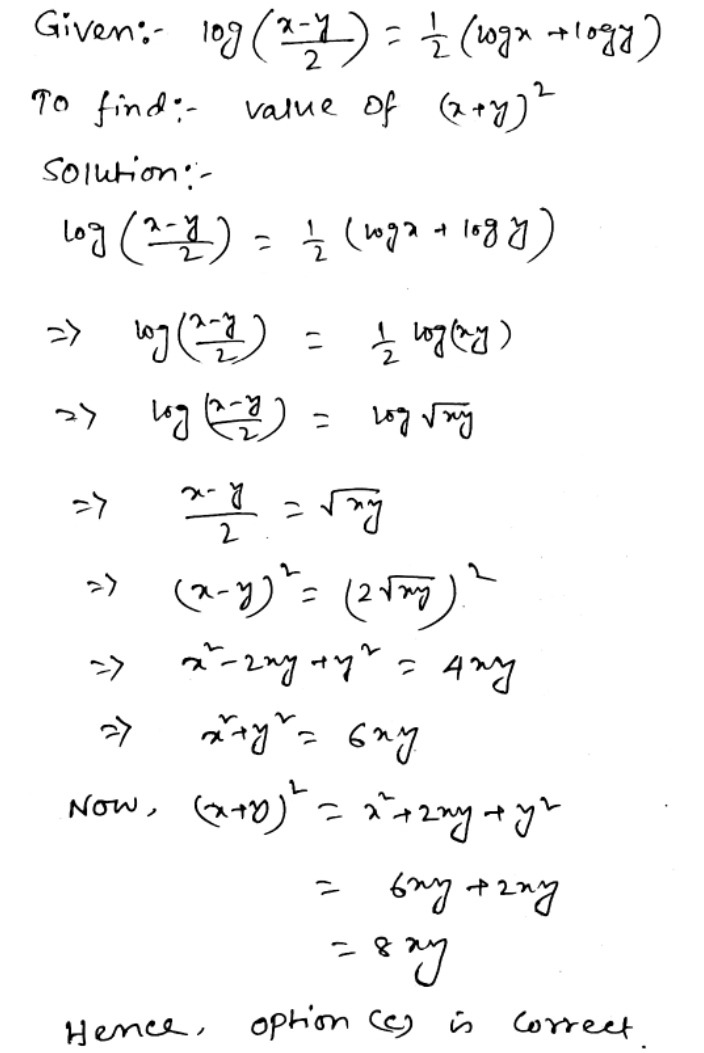 Given:- log(x-y/2) = 1/2 (logx + logy)
To find:- value of (x+y)²
Solution:-
log(x-y/2) = 1/2 (logx + log y)
=> log(x-y/2) = 1/2 log(xy)
=> log(x-y/2) = log √xy
=> x-y/2 = √xy
=> (x-y)² = (2√xy)²
=> x²-2xy+y² = 4xy
=> x²+y² = 6xy
Now, (x+y)² = x²+2xy+y²
= 6xy+2xy
= 8xy
Hence, option (c) is correct.